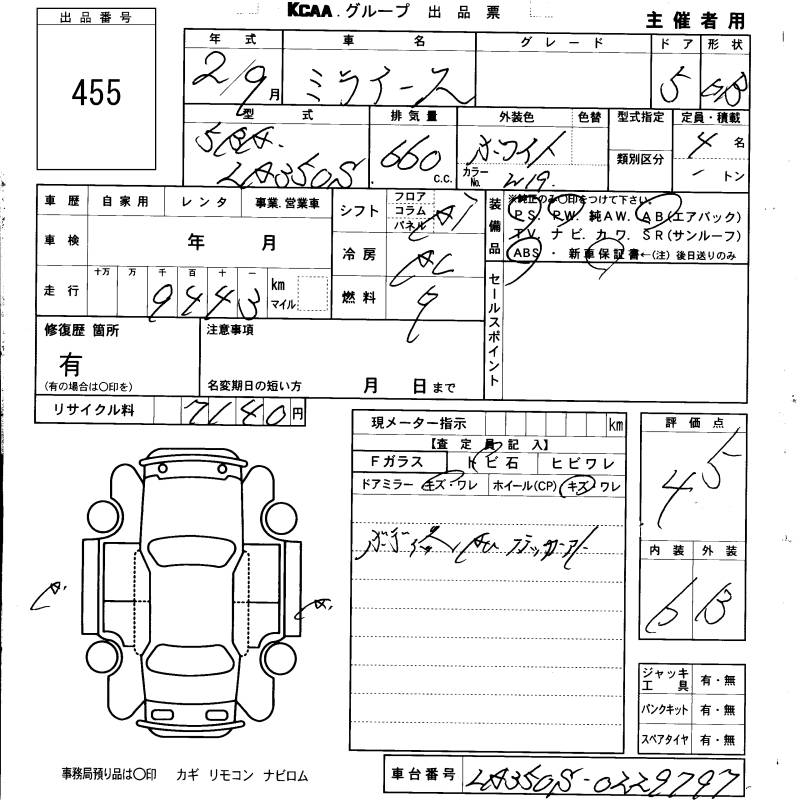 KCAA.グループ 出品票
主催者用
出品番号
455
年式 車名 グレード ドア 形状
2/9月 ミライース 5 HB
型式 排気量 外装色 色替 型式指定 定員・積載
5BA-
LA350S 660 c.c. ホワイト 4 名
カラーNo. W19 類別区分 - トン
車歴 自家用 レンタ 事業.営業車
車検 年 月
走行 十万 万 千 百 十 一 km マイル
9443
シフト フロア コラム パネル AT
冷房 AC
燃料
装備品
※純正のみ〇印をつけて下さい。
PS. PW. 純AW. AB(エアバック)
TV. ナビ. カワ. SR(サンルーフ)
ABS・新車保証書←(注)後日送りのみ
セールスポイント
修復歴 箇所
有
(有の場合は〇印を)
注意事項
名変期日の短い方 月 日まで
リサイクル料 7140円
現メーター指示 km
【査定員記入】
Fガラス トビ石 ヒビワレ
ドアミラー キズ・ワレ ホイール(CP) キズ・ワレ
評価点
4.5
内装 外装
B
A. A.
ジャッキ工具 有・無
パンクキット 有・無
スペアタイヤ 有・無
事務局預り品は〇印 カギ リモコン ナビロム
車台番号 LA350S-0229797